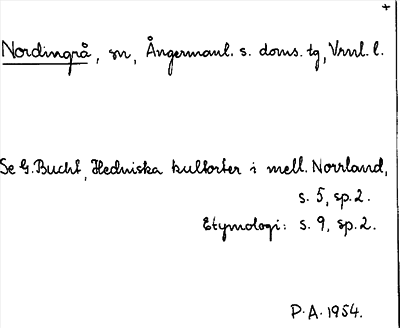 +
Nordingrå, sn, Ångermanl. s. doms. tg, Vrnl. l.
Se G. Bucht, Hedniska kultorter i mell. Norrland,
s. 5, sp. 2.
Etymologi: s. 9, sp. 2.
P. A. 1954.